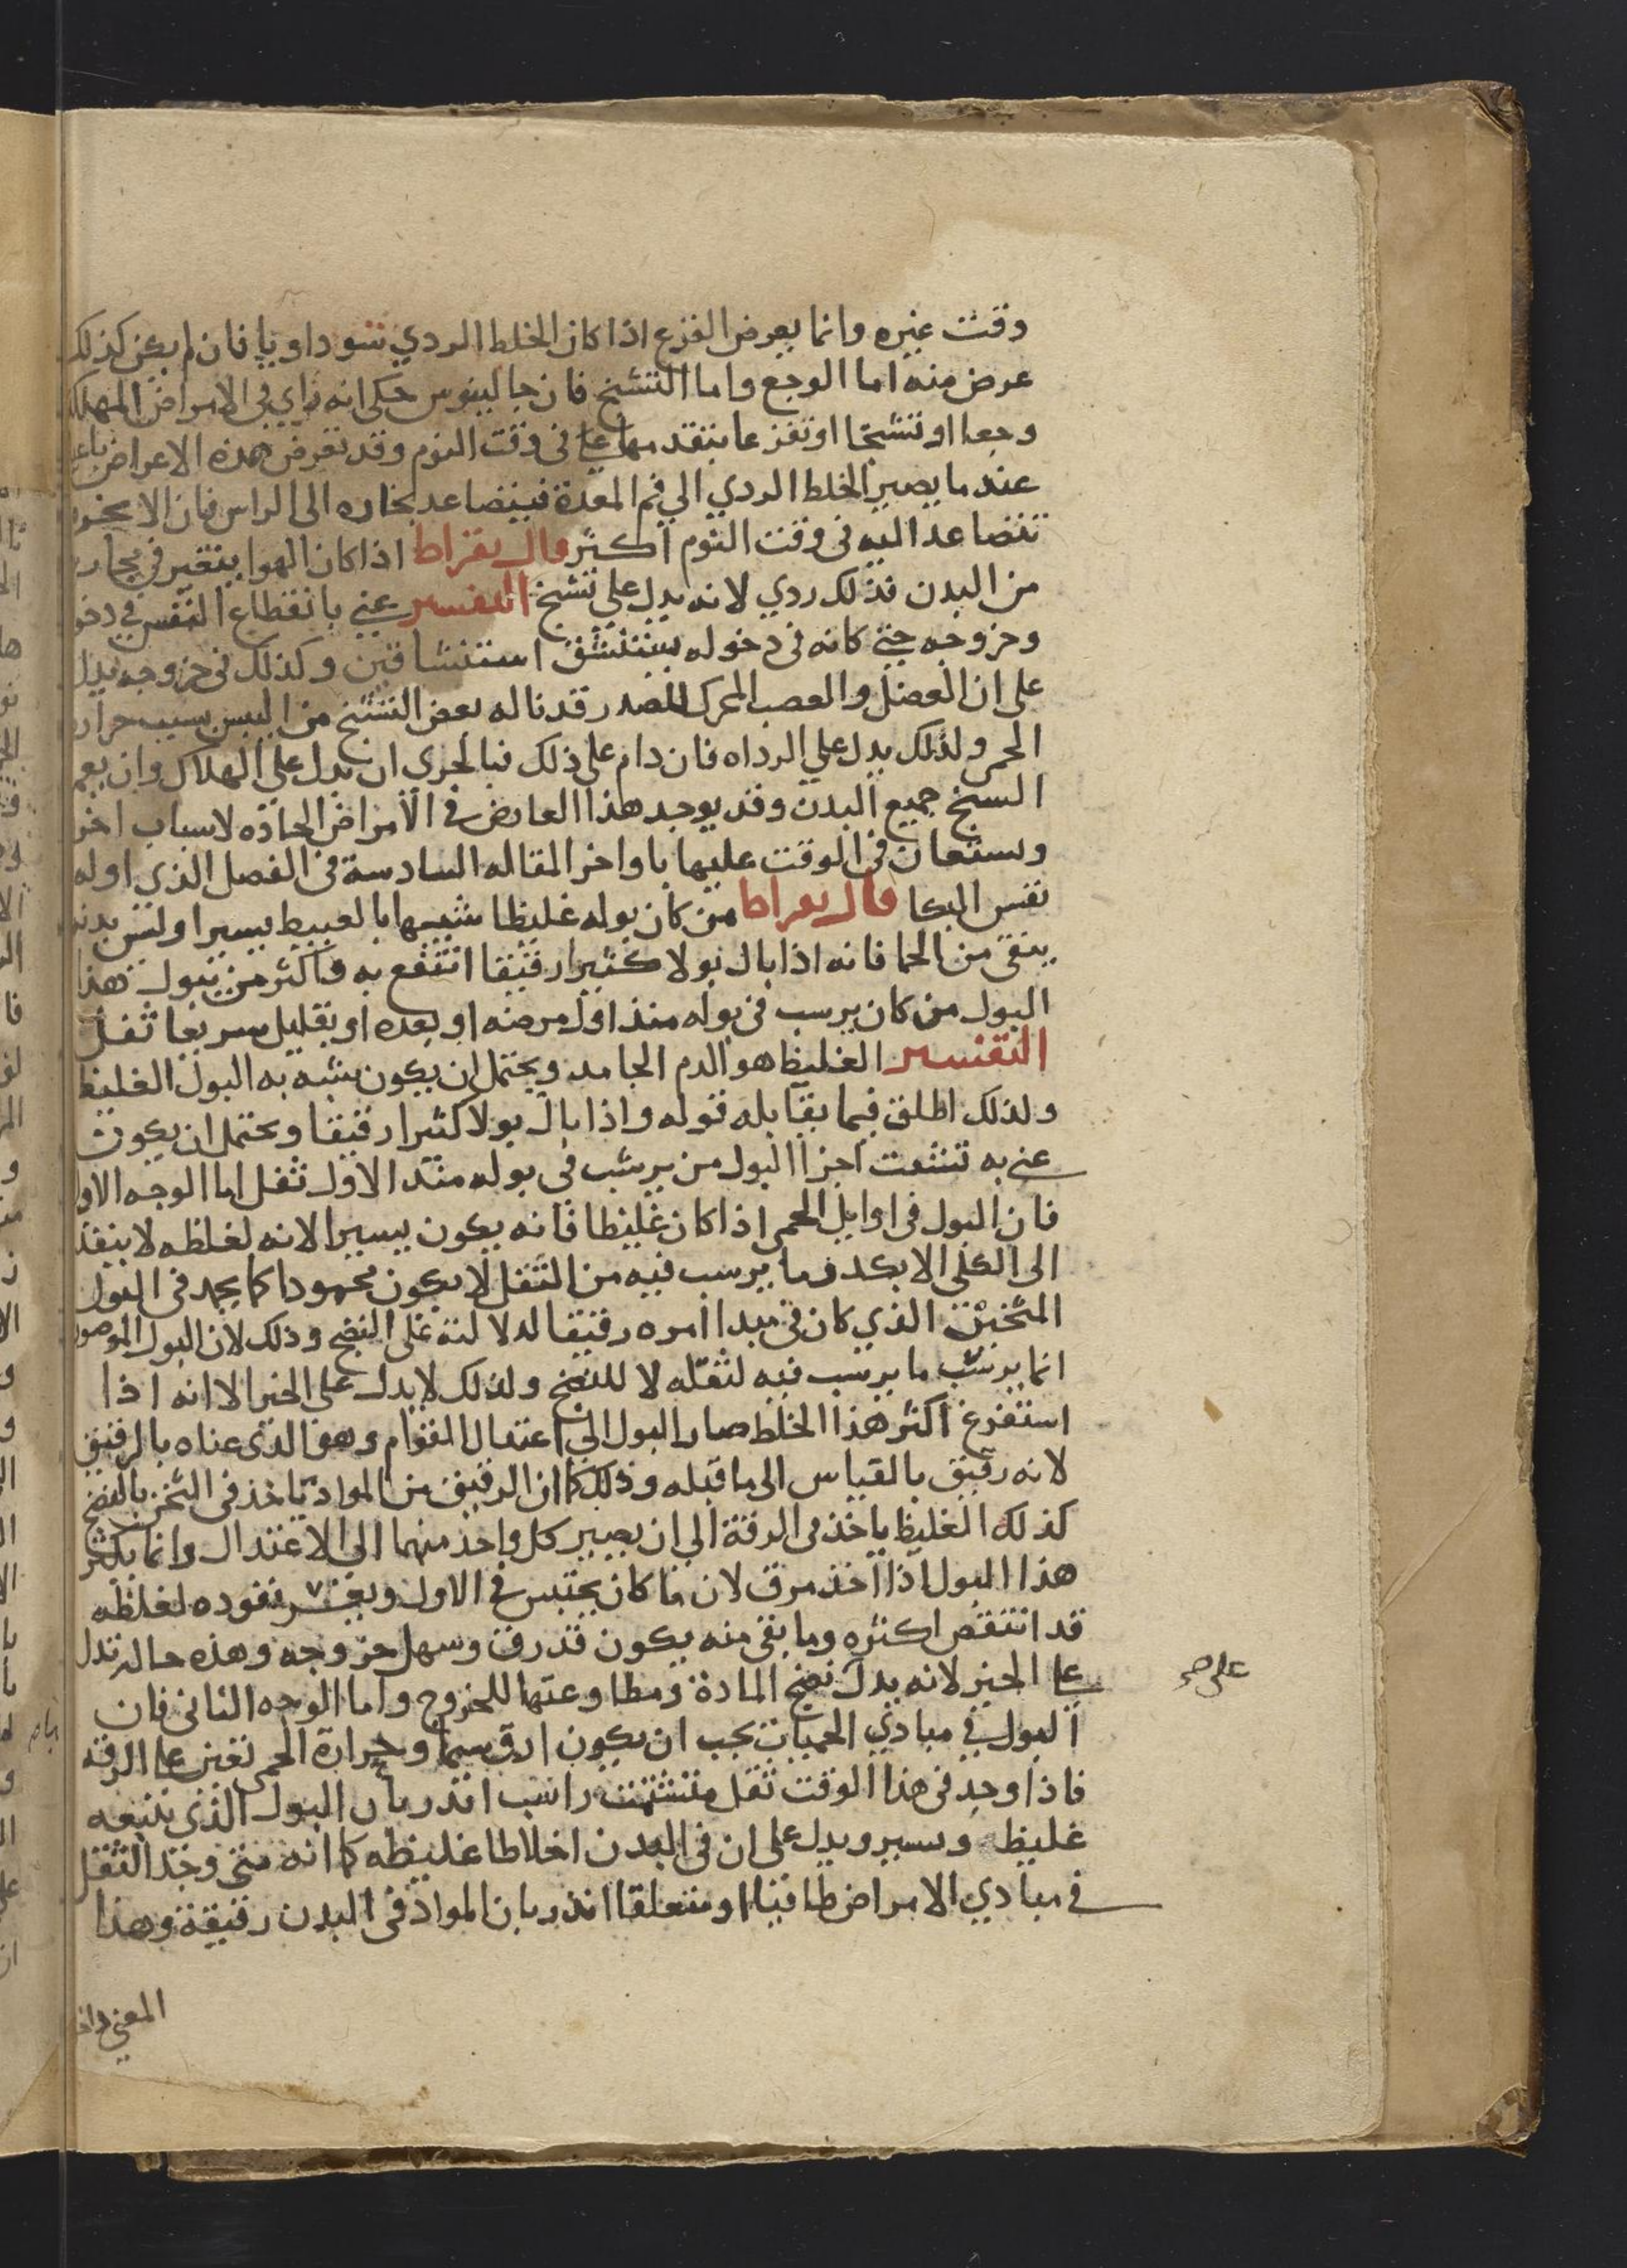 وقت غيره وانما يعرض الفزع اذا كان الخلط الردي سوداويا فان لم يكن كذلك
عرض منه اما الوجع واما التشنج فان جالينوس حكى انه راي في الامراض المهلكة
وجعا او تشنجا او تفزعا يتقدمها في وقت النوم وقد تعرض هذه الاعراض
عندما يصير الخلط الردي الي فم المعدة فيتصاعد بخاره الى الراس فان الابخره
تتصاعد اليه في وقت النوم اكثر قال بقراط اذا كان الهوا يتغير في مجاريه
من البدن فذلك ردي لانه يدل علي تشنج التفسير عني بانقطاع النفس في دخو
وخروجه حتي كانه في دخوله يستنشق استنشاقين وكذلك في خروجه يدل
على ان العضل والعصب المحرك للصدر قد ناله بعض التشنج من اليبس بسبب حرارة
الحمى ولذلك يدل علي الرداه فان دام على ذلك فبالحرى ان يدل علي الهلاك وان يعم
التشنج جميع البدن وقد يوجد هذا العارض في الامراض الحادة لاسباب اخر
وستعان في الوقت عليها باواخر المقاله السادسة في الفصل الذي اوله
نفس البكا قال بقراط من كان بوله غليظا شبيها بالعبيط يسيرا وليس بدنه
ينقى من الحما فانه اذا بال بولا كثيرا رقيقا انتفع به واكثر من يبول هذا
البول من كان يرسب في بوله منذ اول مرضه او بعده او بقليل سريعا ثفل
التفسير الغليظ هو الدم الجامد ويحتمل ان يكون يشبه به البول الغليظ
ولذلك اطلق فيما يقابله قوله واذا بال بولا كثيرا رقيقا ويحتمل ان يكون
عني به تشتت اجزا البول من يرسب في بوله منذ الاول ثفل اما الوجه الاول
فان البول في اوايل الحمى اذا كان غليظا فانه يكون يسيرا لانه لغلظه لا ينفذ
الى الكلى الا بكد وما يرسب فيه من الثفل لا يكون محمودا كما يحمد في البول
المثخن الذي كان في مبدا امره رقيقا لدلالته على النضج وذلك لان البول الموصوف
انما يرسب ما يرسب فيه لثقله لا للنضج ولذلك لا يدل على الخير الا انه اذا
استفرغ اكثر هذا الخلط صار البول الى اعتدال القوام وهو الذي عناه بالرقيق
لانه رقيق بالقياس الى ما قبله وذلك كما ان الرقيق من المواد ياخذ في الثخن بالنضج
كذلك الغليظ ياخذ في الرقة الي ان يصير كل واحد منهما الي الاعتدال وانما يكثر
هذا البول اذا اخذ يرق لان ما كان يحتبس في الاول ويعسر نفوذه لغلظه
قد انتقص اكثره وما بقي منه يكون قد رق وسهل خروجه وهذه حاله تدل
على الخير لانه يدل نضج المادة ومطاوعتها للخروج واما الوجه الثاني فان
البول في مبادي الحميات يجب ان يكون ارق سيما وحرارة الحمى تعين على الرقه
فاذا وجد في هذا الوقت ثفل متشتت راسب انذر بان البول الذي يتبعه
غليظ ويسير ويدل على ان في البدن اخلاطا غليظه كما انه متى وجد الثفل
في مبادي الامراض طافيا او متعلقا انذر بان المواد في البدن رقيقة وهذا
المعنى